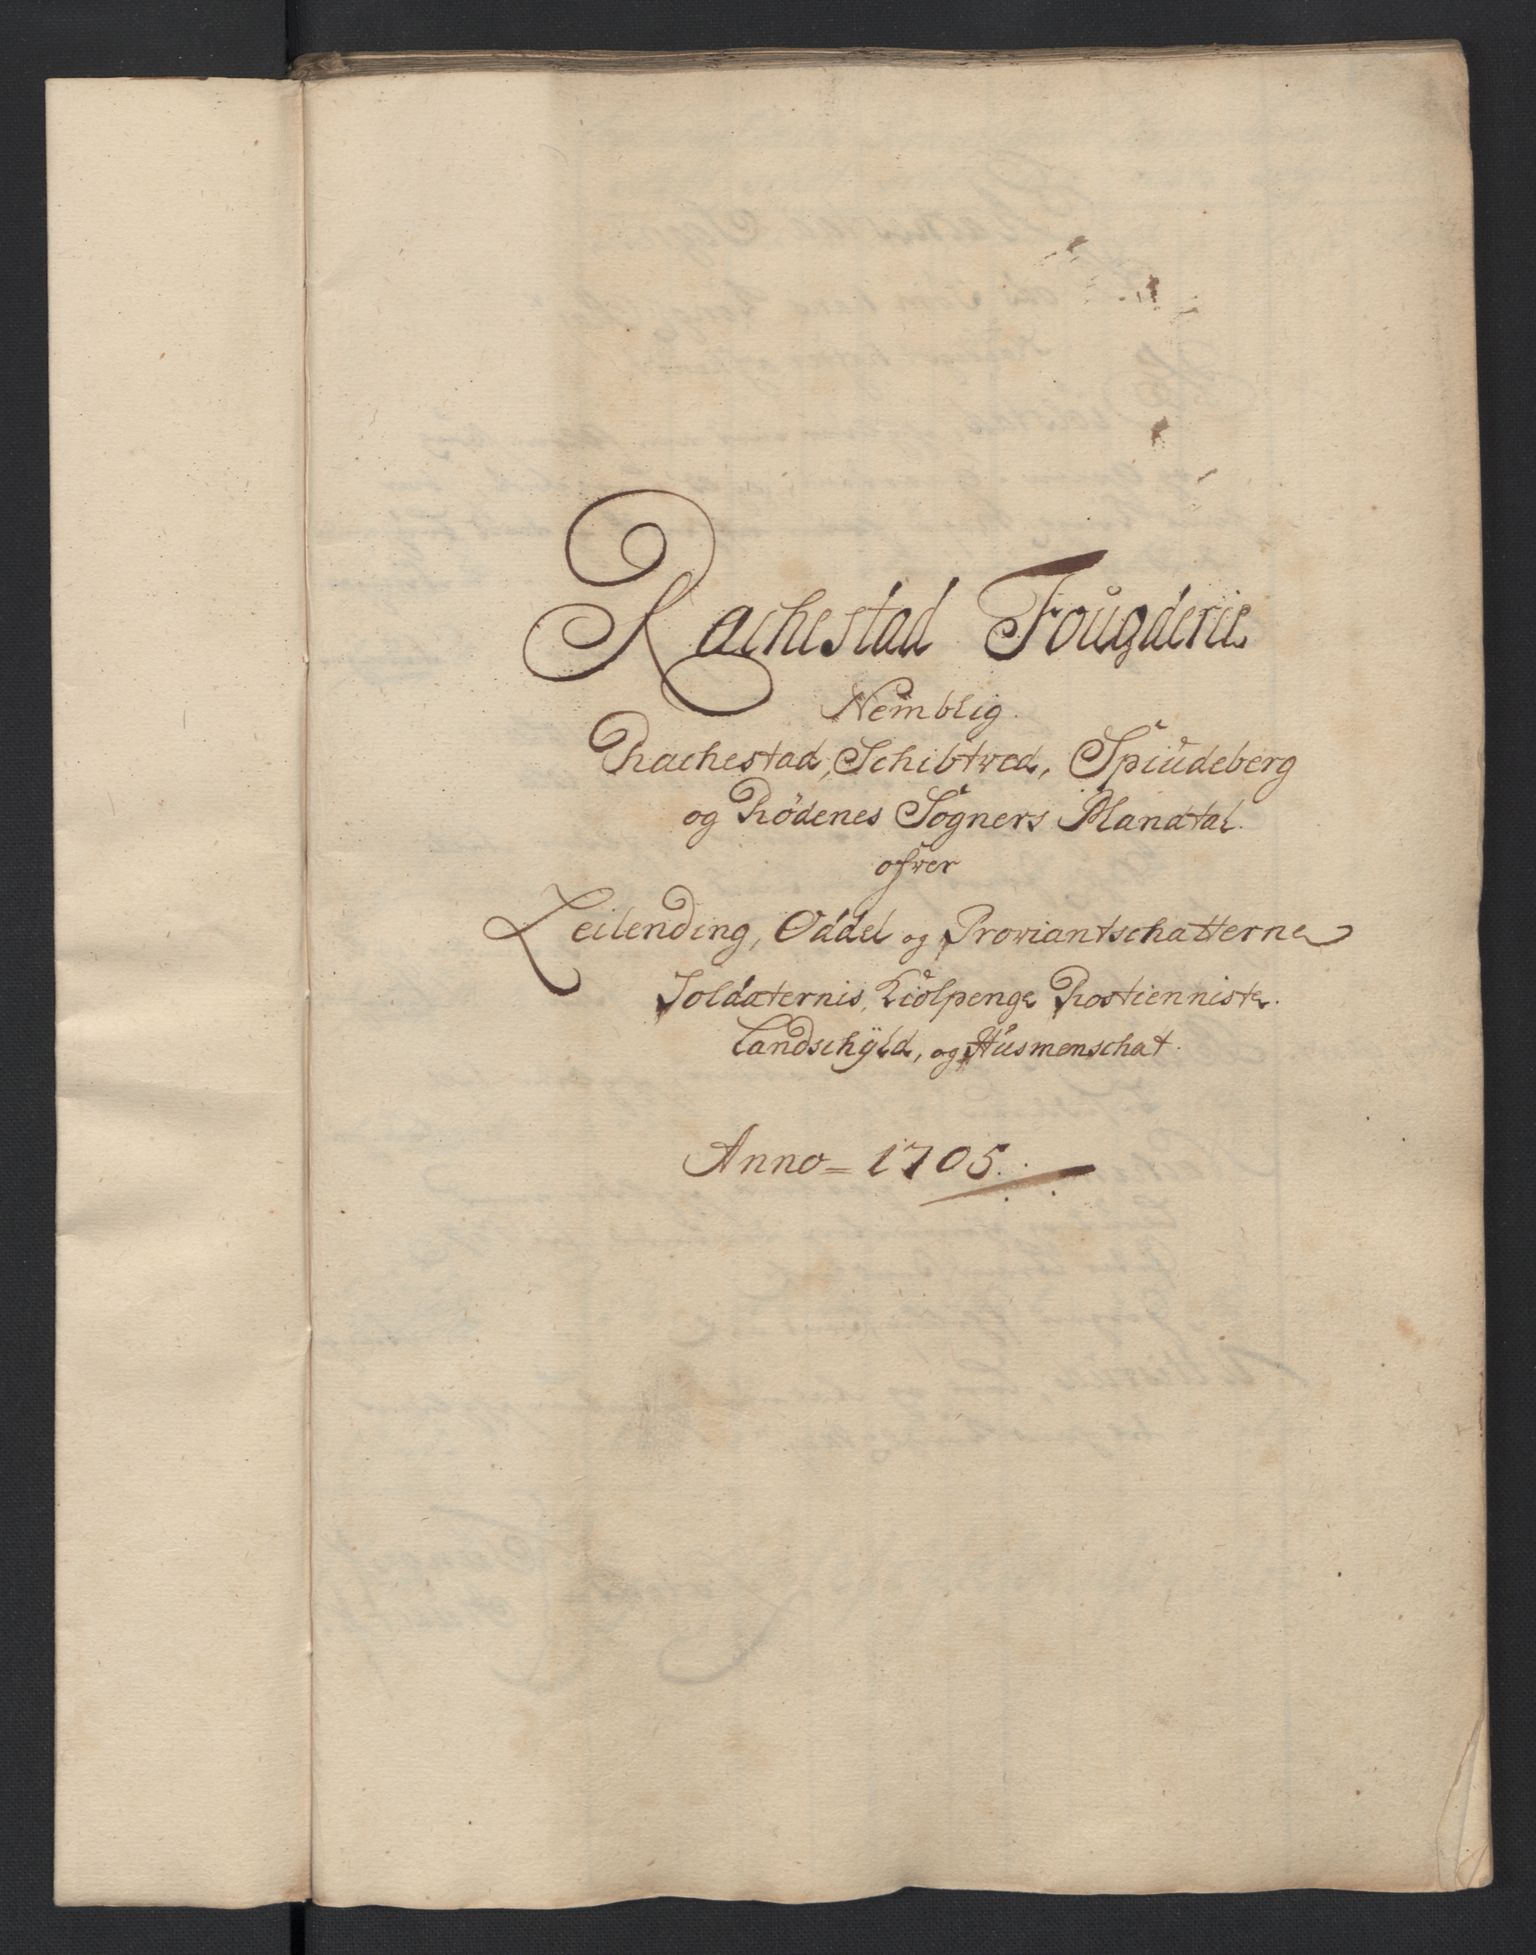 Rachestad Fougderie
Nemblig.
Rachestad, Schibtved, Spiudeberg
og Rödenes Sogners Mandtal.
ofwer
Leilending, Oddel og Prowiantschatterne
Soldaternis, Kiolpenge Rostienniste.
Landschÿld, og Husmenschat.
Anno = 1705.